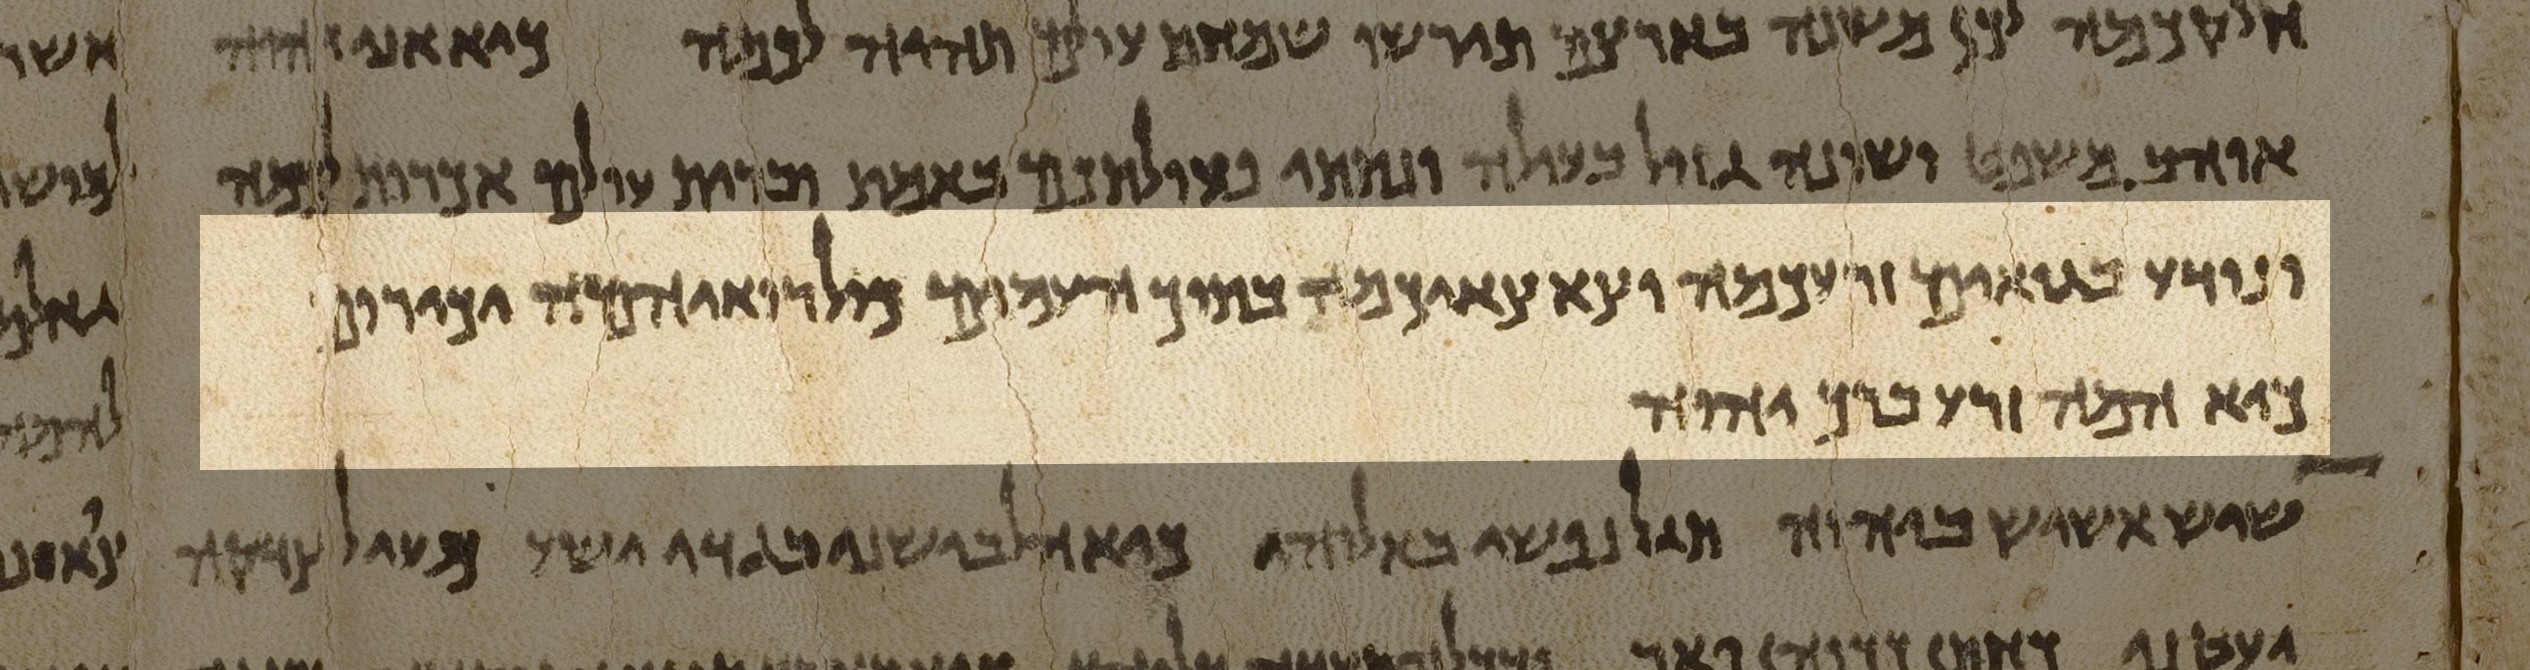 חלקכמה לכן משנה בארצם תירשו שמחת עולם תהיה לכמה כיא אני יהוה
אוהב משפט ושונה גזול בעולה ונתתי פעולתכם באמת וברית עולם אכרות לכמה
ונודע בגואים זרעכמה וצאצאיכמה בתוך העמים כול רואיהמה יכירום
כיא המה זרע ברך יהוה
שוש אשיש ביהוה תגל נפשי באלוהי כיא הלבישני בגדי ישע מעיל צדקה